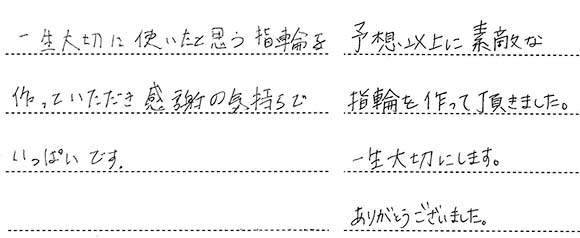 一生大切に使いたと思う指輪を
作っていただき感謝の気持ちで
いっぱいです.
予想以上に素敵な
指輪を作って頂きました。
一生大切にします。
ありがとうございました。